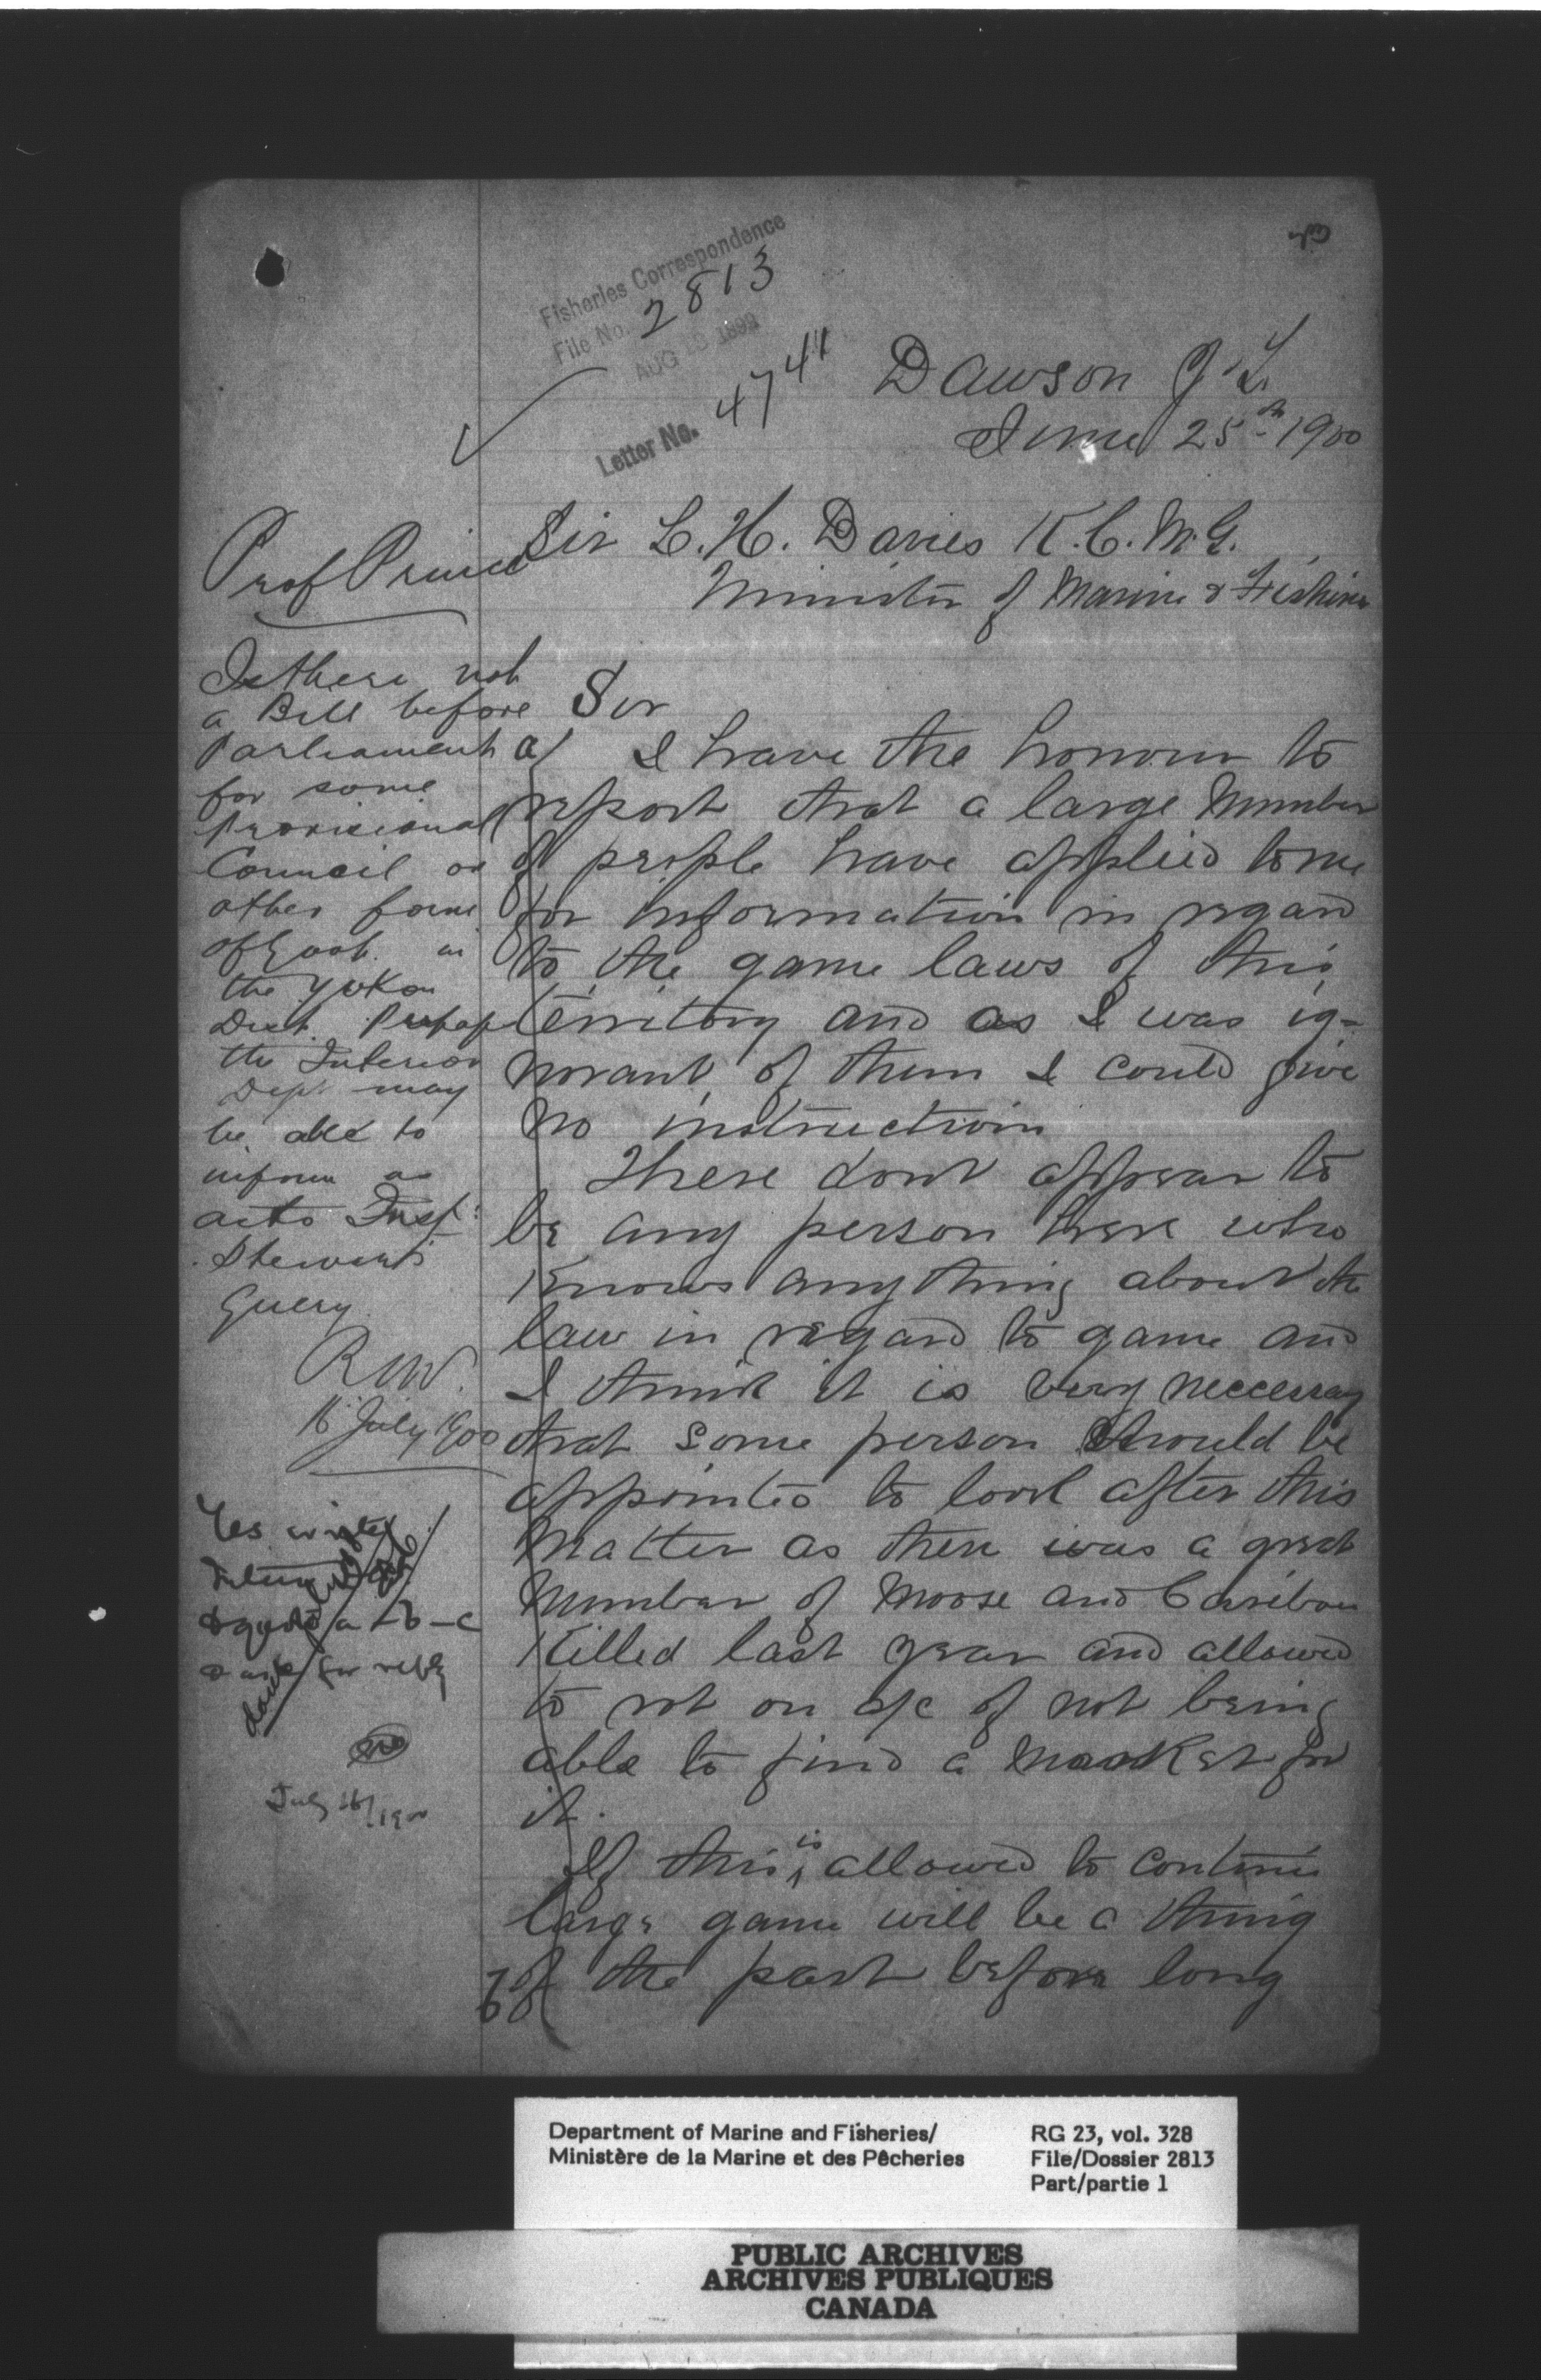 Fisheries Correspondence
File No. 2813
AUG 13 1899
Letter No. 4744
Dawson Y.T.
June 25th 1900
Sir L. H. Davies K.C.M.G.
Minister of Marine & Fisheries
Sir
a/ I have the honour to
report that a large number
of people have applied to me
for information in regard
to the game laws of this
Territory and as I was ig-
norant of them I could give
no instruction
There dont appear to
be any person here who
Knows anything about the
law in regard to game and
I think it is very neccessary
that some person should be
appointed to look after this
matter as there was a great
number of Moose and Caribou
Killed last year and allowed
to rot on a/c of not being
able to find a market for
it.
If this is allowed to continue
large game will be a thing
b of the past before long
Prof Prince
Is there not
a Bill before
Parliament
for some
Provisional
Council or
other form
of Govt. in
the Yukon
Dist. Perhaps
the Interior
Dept. may
be able to
inform us
as to Insp.
Stewart's
query.
R.N.V.
16 July 1900
Yes write
Interior
& quote a - b - c
& ask for reply
done
July 16/1900
Department of Marine and Fisheries/
Ministère de la Marine et des Pêcheries
RG 23, vol. 328
File/Dossier 2813
Part/partie 1
PUBLIC ARCHIVES
ARCHIVES PUBLIQUES
CANADA